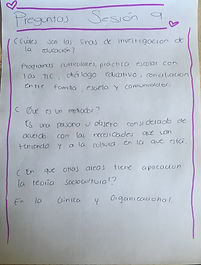 Preguntas Sesión 9
¿Cuáles son las líneas de investigación de
la educación?
Programas curriculares, práctica escolar con
las TIC, diálogo educativo, conciliación
entre familia escuela y comunidades.
¿ Qué es un mediador?
Es una persona u objeto considerado de
acuerdo con las necesidades que van
teniendo y a la cultura en la que está.
¿ En que otras areas tiene aplicación
la teoría sociocultural?
En la Clínica y Organizacional.